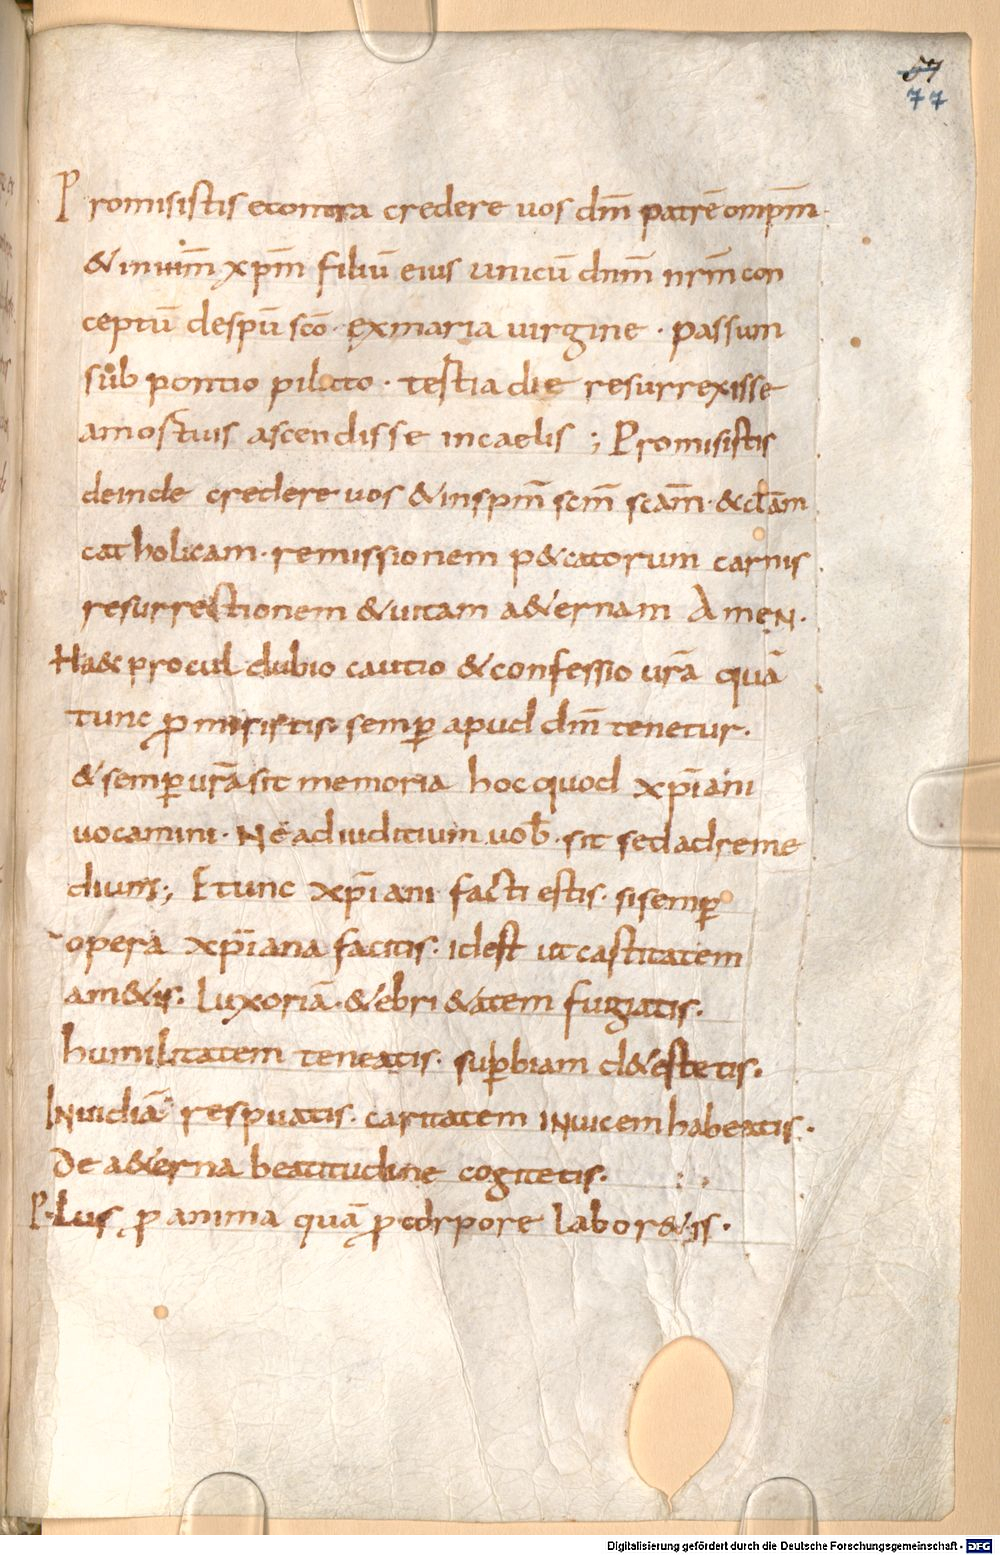 57
77
Promisistis econtra credere uos dm̄ patrē omp̄m·
& inihm̄ xp̄m filiū eius unicū dnm̄ nrm̄ con
ceptū despū scō· ex maria uirgine · passum
sub pontio pilato · testia die resurrexisse
a mostuis ascendisse incaelis ; Promisistis
deinde credere uos & inspm̄ scm̄ scam̄· & cl̄am
catholicam· remissionem p&catorum carnis
resurrectionem & uitam a&ernam AmeN·
Haec procul dubio cautio & confessio urā quā
tunc ꝓmisistis· semꝑ apud dm̄ tenetur·
& semꝑ urā sit memoria hoc quod xp̄iani
uocamini· Ne ad iuditium uob̄· sit sed ad reme
dium; Et tunc xp̄iani facti estis· si semꝑ
opera xp̄iana facitis· id est ut castitatem
am&is· luxoriā· & ebri&atem fugiatis·
humilitatem teneatis· suꝑbiam d&estetis·
Inuidiā respuatis· caritatem INuicem habeatis·
De a&erna beatitudine cogitetis·
P·lus ꝓ anima quā ꝓ corpore labor&is·
Digitalisierung gefördert durch die Deutsche Forschungsgemeinschaft - DFG